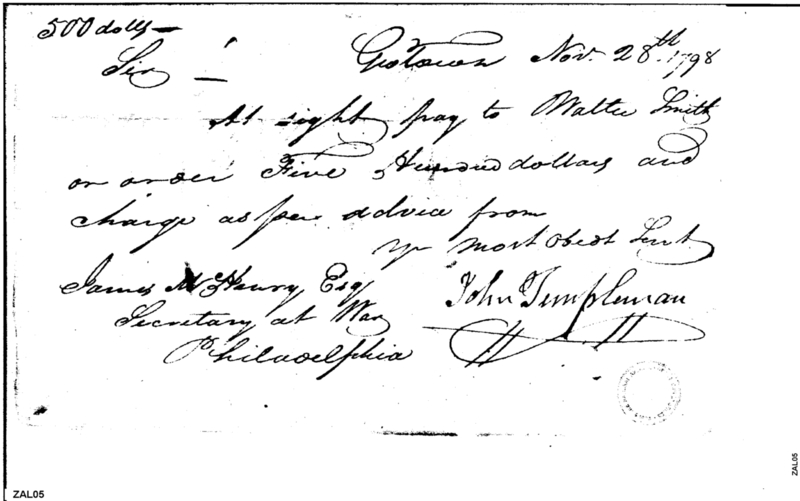 500 dolls
Geotown Nov. 28th 1798
Sir
At sight pay to Walter Smith
or order Five Hundred dollars and
charge as per advice from
yr most obedt Servt
John Templeman
James McHenry Esq
Secretary at War
Philadelphia
ZAL05
ZAL05